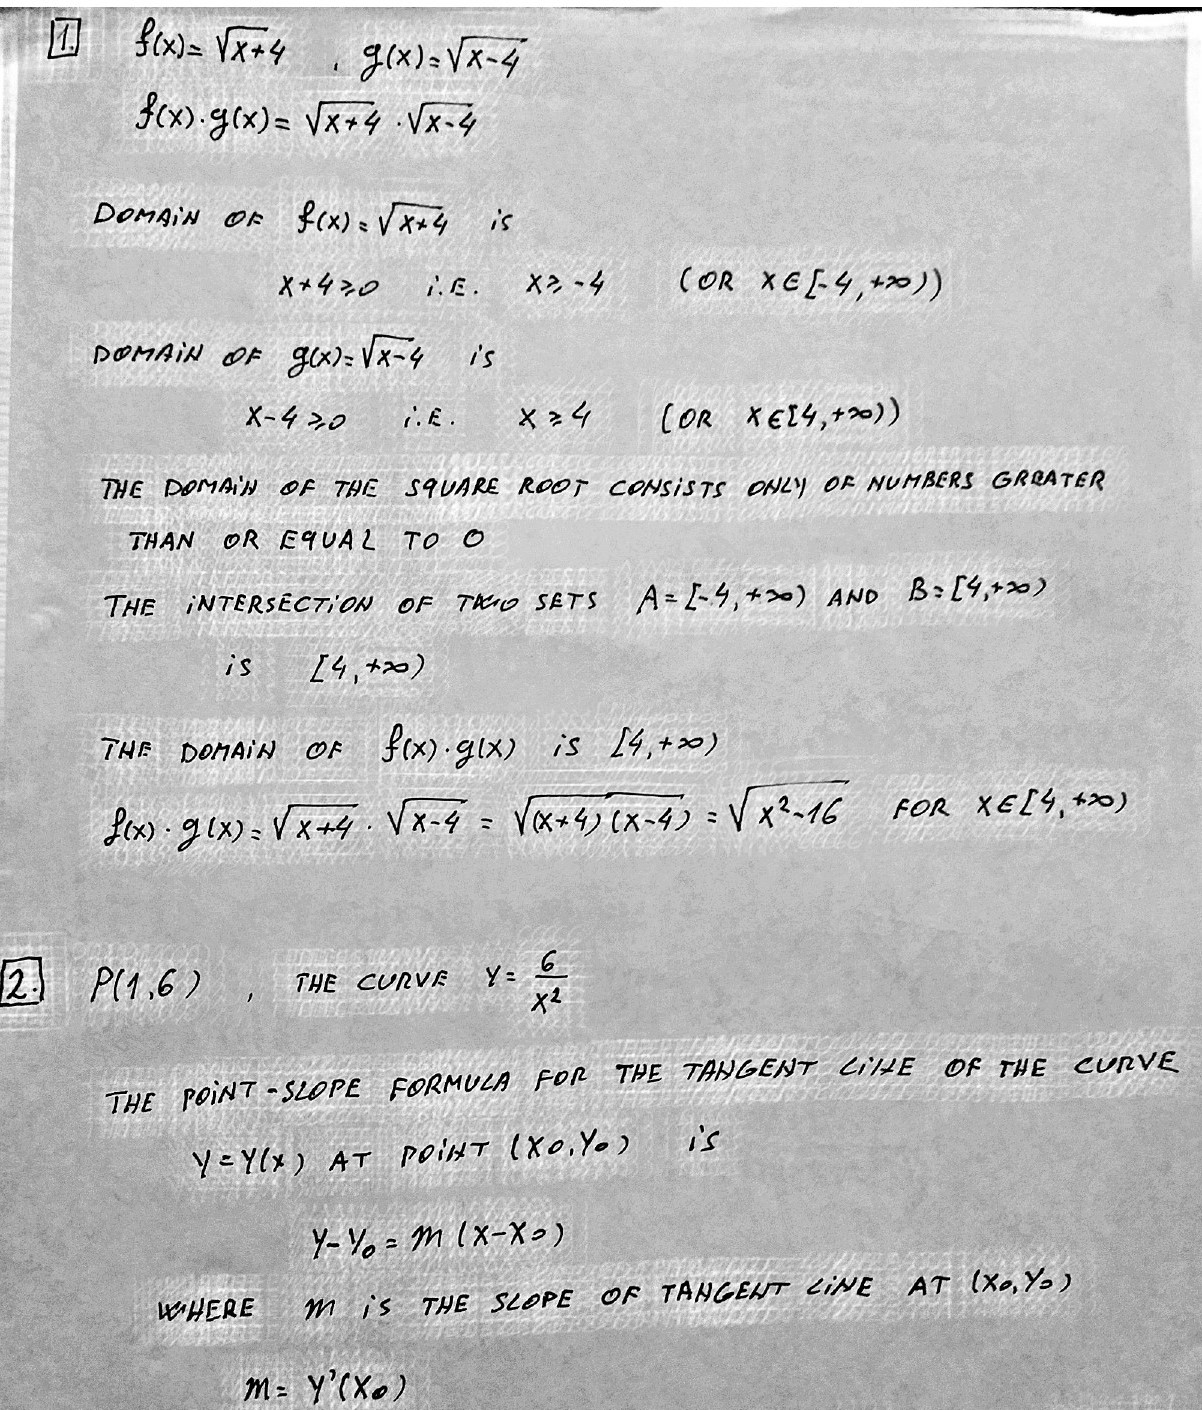 1. f(x)=√x+4 , g(x)=√x-4
f(x)·g(x)=√x+4 ·√x-4
DOMAIN OF f(x)=√x+4 is
x+4≥0 i.E. x≥-4 (OR x∈[-4,+∞))
DOMAIN OF g(x)=√x-4 is
x-4≥0 i.E. x≥4 (OR x∈[4,+∞))
THE DOMAIN OF THE SQUARE ROOT CONSISTS ONLY OF NUMBERS GREATER
THAN OR EQUAL TO 0
THE INTERSECTION OF TWO SETS A=[-4,+∞) AND B=[4,+∞)
is [4,+∞)
THE DOMAIN OF f(x)·g(x) is [4,+∞)
f(x)·g(x)=√x+4·√x-4=√(x+4)(x-4)=√x²-16 FOR x∈[4,+∞)
2. P(1,6) , THE CURVE Y=6/x²
THE POINT-SLOPE FORMULA FOR THE TANGENT LINE OF THE CURVE
Y=Y(x) AT POINT (x₀,Y₀) is
Y-Y₀=m(x-x₀)
WHERE m is THE SLOPE OF TANGENT LINE AT (x₀,Y₀)
m=Y'(x₀)